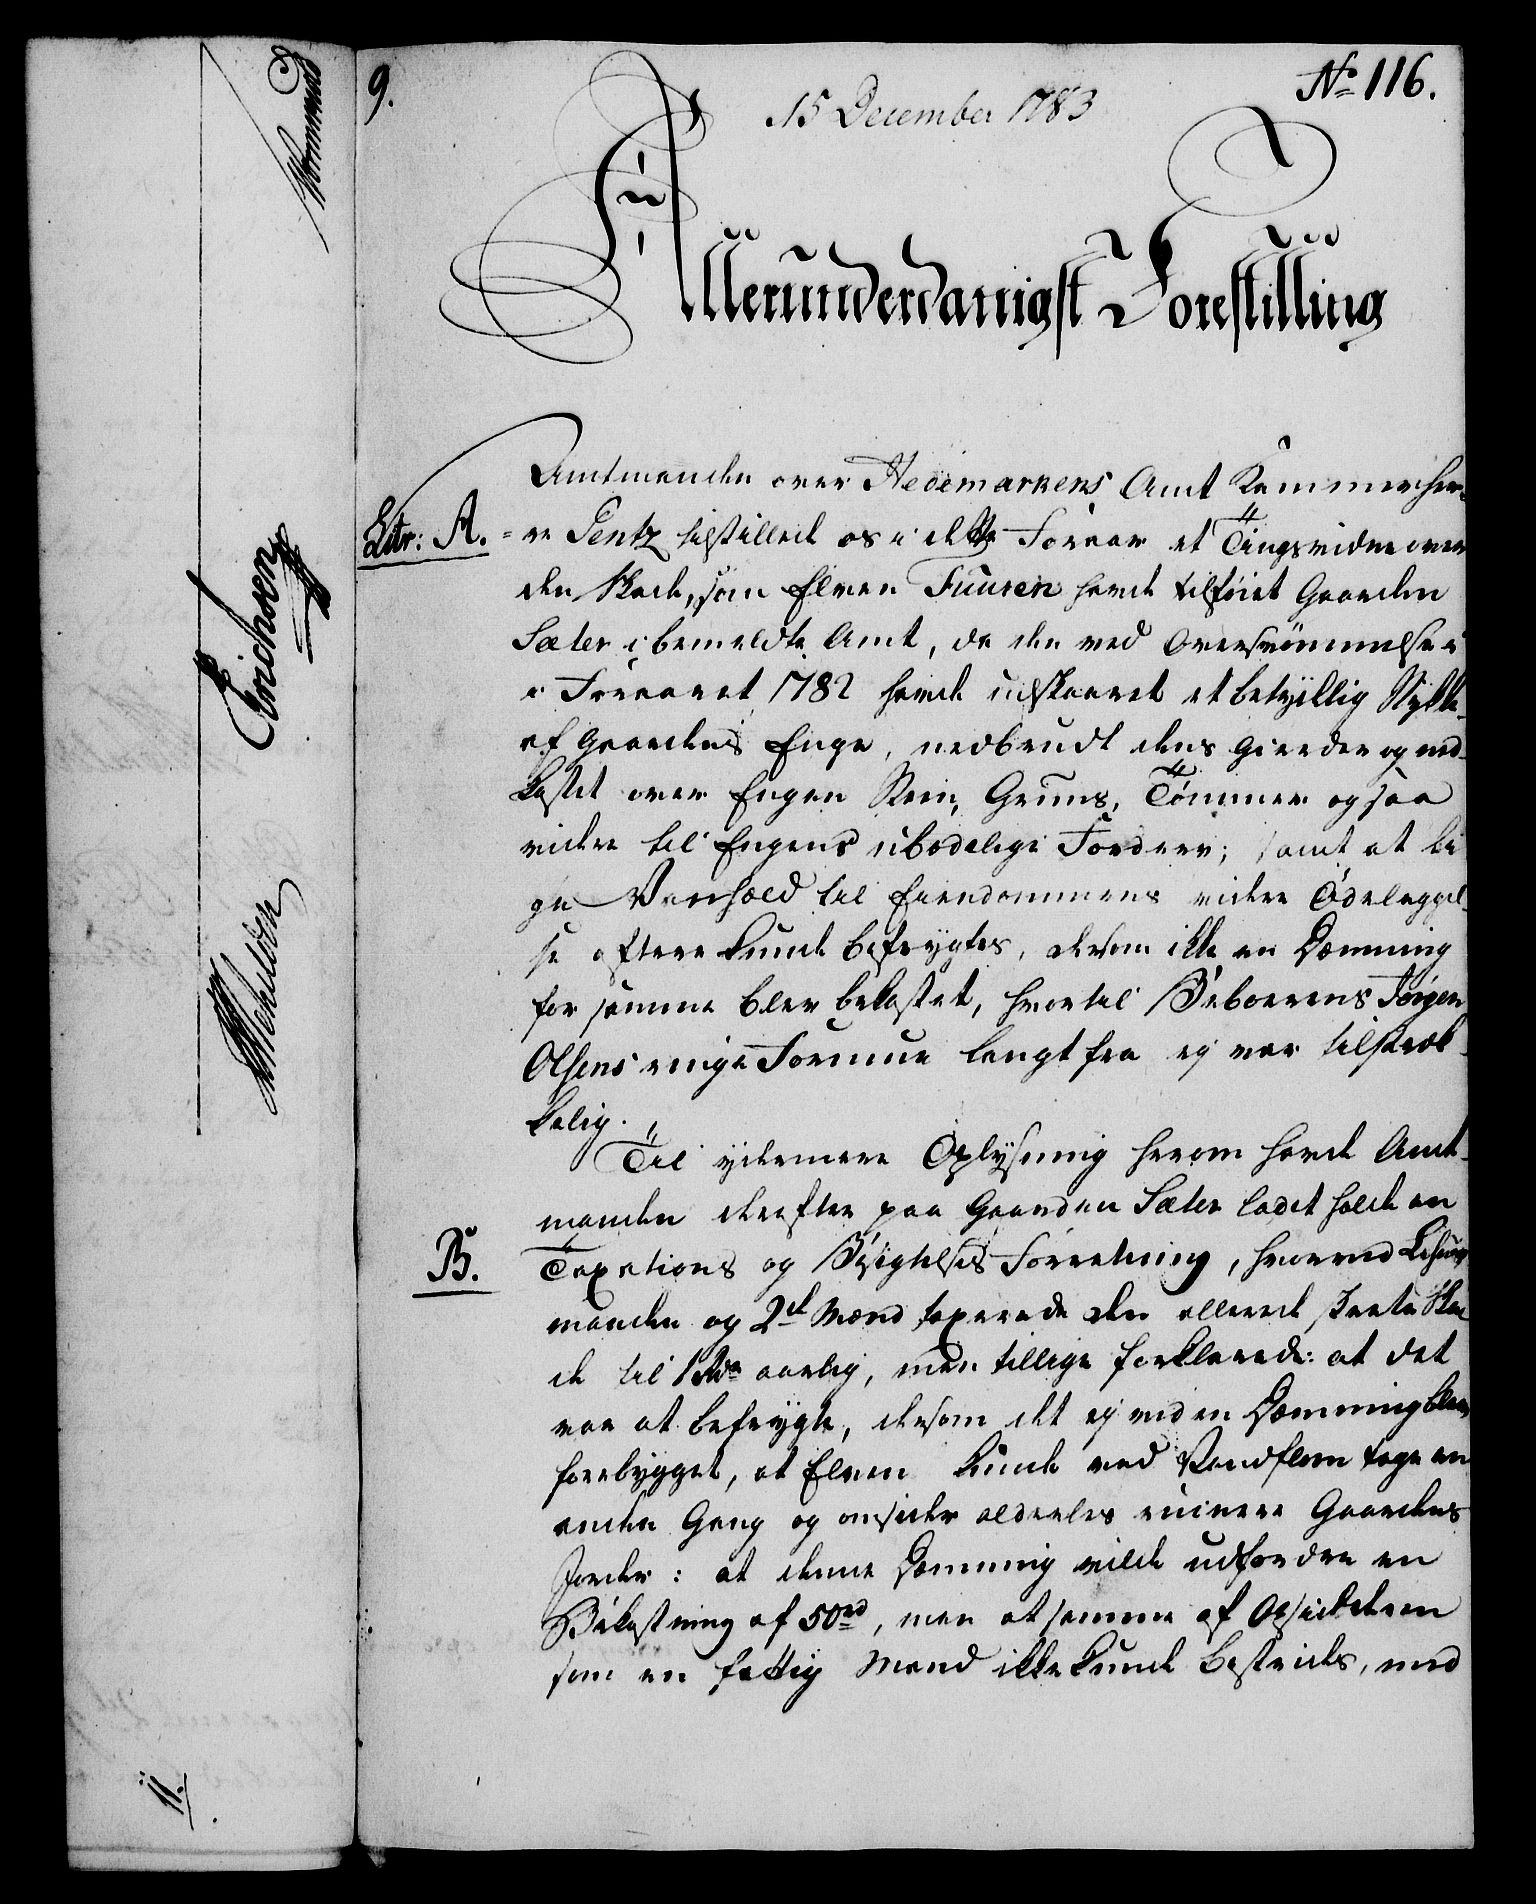 9.
No 116.
15 December 1783
Allerunderdanigst Forestilling
Amtmanden over Hedemarkens Amt Kammerher-
Litr: A. =re Sentz tilstillede os i dette Foraar et Tingsvidne over
den Skade, som Elven Fuuren havde tilføiet Gaarden
Sæter i bemeldte Amt, da den ved Oversvømmelse
i Foraaret 1782 havde udskaaret et betydelig Stykke
af Gaardens Enge, nedbrudt dens Gierder og ned-
kastet over Engen Steen, Gruus, Tømmer og saa
videre til Engens ubodelige Fordærv; samt at li
ge Vanheld til Eiendommens videre Ødelæggel-
se oftere kunde befrygtes, dersom ikke en Dæmning
for samme blev bekostet, hvortil Beboerens Jørgen
Olsens ringe Formue langt fra ej var tilstræk-
kelig.
Til ydermere Oplysning herom havde Amt-
manden derefter paa Gaarden Sæter ladet holde en
B. Taxations og Besigtelses Forretning, hvorved Lehns
manden og 2de Mænd taxerede den allerede skeete Ska
de til 1 Rdr aarlig, men tillige forklarede: at det
var at befrygte, dersom det ej ved en Dæmning blev
forebygget, at Elven kunde ved Vandflom tage en
anden Gang og omsider aldeeles ruinere Gaardens
Jorder: at denne Dæmning vilde udfordre en
Bekostning af 50rd, men at samme af Opsidderen
som en fattig Mand ikke kunde bestrides, med
Wormskiold
Erichsen
Mehldahl
11.